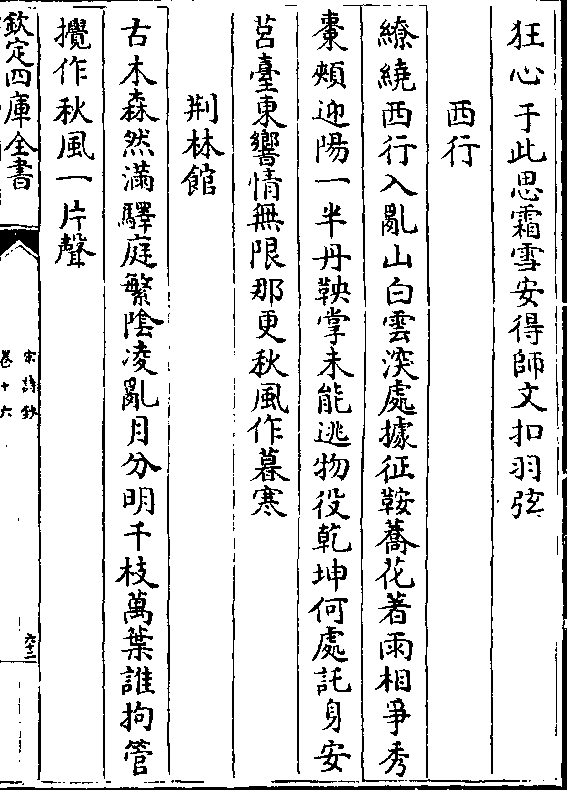 狂心于此思霜雪安得師文扣羽弦
西行
繚繞西行入亂山白雲深處據征鞍蕎花著雨相爭秀
棗頰迎陽一半丹鞅掌未能逃物役乾坤何處託身安
莒臺東響情無限那更秋風作暮寒
荆林館
古木森然滿驛庭繁陰凌亂月分明千枝萬葉誰拘管
攪作秋風一片聲
欽定四庫全書
宋詩鈔
卷十六